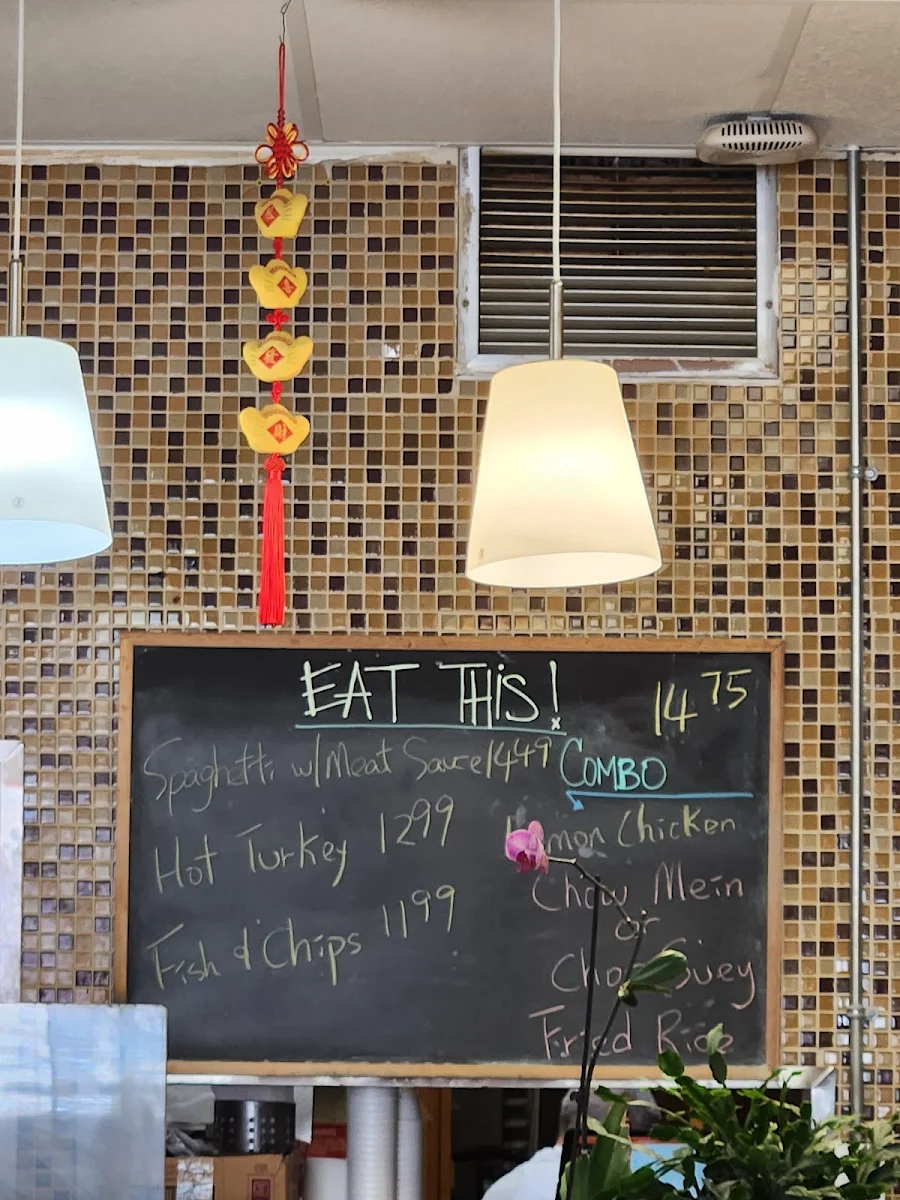 EAT THIS!
Spaghetti w/Meat Sauce 14 49
Hot Turkey 12 99
Fish & Chips 11 99
14 75
COMBO
Lemon Chicken
Chow Mein
or
Chop Suey
Fried Rice
財